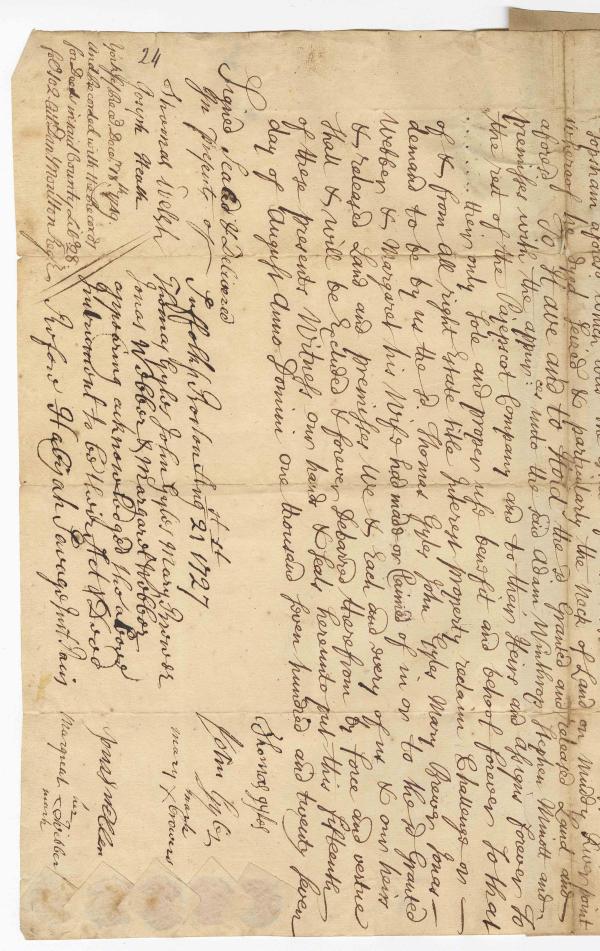 Topsham aforesd
whereof he dyed seized & particularly the Neck of Land on Muddy River point
aforesd To Have and to Hold the sd Granted and released Land and
premisses with the appurces unto the said Adam Winthrop Stephen Minott and
the rest of the Pejepscot Company and to their Heirs and assigns forever To
their only sole and proper use benefit and behoof forever So that
of & from all right Estate title Interest property reclaim Challenge or
demand to be by us the sd Thomas Gyles John Gyles Mary Brewer Jonas
Webber & Margaret his Wife had made or claimed of in or to the sd Granted
& released Land and premisses We & each and every of us & our heirs
shall & will be Excluded & forever Debarred therefrom by force and vertue
of these presents Witness our hands & seals hereunto put this fifteenth
day of August Anno Domini one thousand seven hundred and twenty seven
Signed Sealed & Delivered
In presents of
Thomas Welsh
Joseph Heath
24
York ss Recd Decr 1749
and Recorded with the Records
for Deeds in said County Lib 28
fol 52 att Danl Moulton Regr
Suffolk ss Boston Aug st 21st 1727
Thomas Gyles John Gyles Mary Brewer
Jonas Webber & Margaret Webber
appearing acknowledged the above
Instrument to be their Act & Deed
Before Habijah Savage Just. Pacis
Thomas gyles
John Gyles
mark
mary X Brewer
Jonas Webber
her
Margreat X Webber
mark